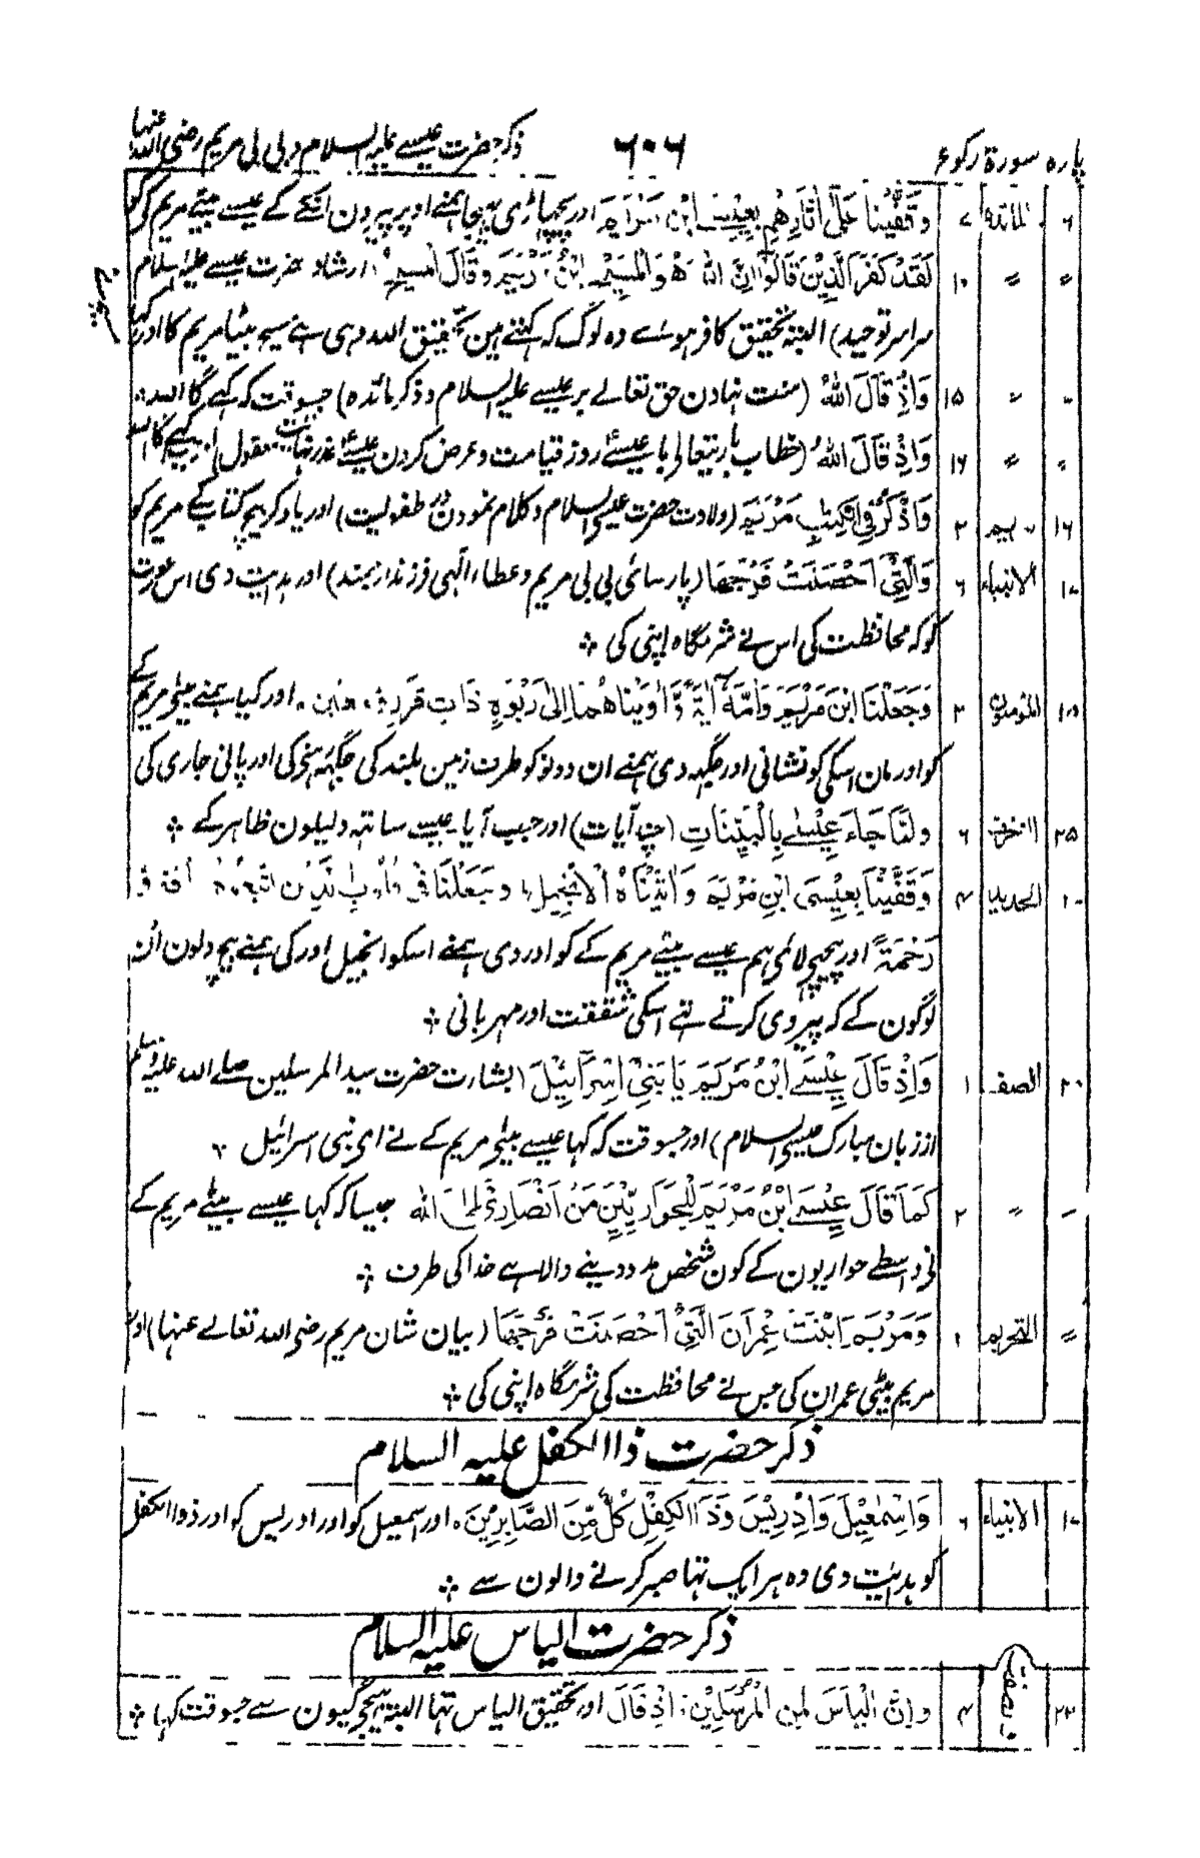 پارہ سورۃ رکوع ۶۰۶ ذکر حضرت عیسے علیہ السلام و بی بی مریم رضی اللہ عنہا
۶ المائدۃ ۷ وَقَفَّيْنَا عَلَىٰ اٰثَارِهِمْ بِعِيْسَے ابْنِ مَرْيَمَ اور پچھاڑی بہیجا ہمنے اوپر پیرون انکے کے عیسے بیٹے مریم کی کو
〃 〃 ۱۰ لَقَدْ كَفَرَ الَّذِيْنَ قَالُوْٓا اِنَّ اللّٰهَ هُوَ الْمَسِيْحُ ابْنُ مَرْيَمَ وَقَالَ الْمَسِيْحُ (ارشاد حضرت عیسے علیہ السلام
سراسر توحید) البتہ تحقیق کافر ہوئے وہ لوگ کہ کہتے ہین تحقیق اللہ وہی ہے مسیح بیٹا مریم کا اور کہا
〃 〃 ۱۵ وَاِذْ قَالَ اللّٰهُ (منت نہادن حق تعالے بر عیسے علیہ السلام و ذکر مائدہ) جسوقت کہ کہے گا اللہ
〃 〃 ۱۶ وَاِذْ قَالَ اللّٰهُ (خطاب باریتعالی با عیسےٰ روز قیامت و عرض کردن عیسےٰ معقول) کہے گا اللہ
۱۶ مریم ۲ وَاذْكُرْ فِي الْكِتٰبِ مَرْيَمَ (ولادت حضرت عیسی السلام و کلام نمودن در طفولیت) اور یاد کر بیچ کتاب کے مریم کو
۱۷ الانبیاء ۶ وَالَّتِيْٓ اَحْصَنَتْ فَرْجَهَا (پارسائی بی بی مریم و عطاء الٰہی فرزند ارجمند) اور ہدایت دی اس عورت
کو کہ محافظت کی اس نے شرمگاہ اپنی کی
۱۸ المؤمنون ۳ وَجَعَلْنَا ابْنَ مَرْيَمَ وَاُمَّهٗٓ اٰيَةً وَّاٰوَيْنَاهُمَا اِلٰى رَبْوَةٍ ذَاتِ قَرَارٍ وَّمَعِيْنٍ ۰ اور کیا ہمنے بیٹے مریم کے
کو اور مان اسکی کو نشانی اور جگہہ دی ہمنے ان دونو کو طرف زمین بلند کی جگہہ رہنے کی اور پانی جاری کی
۲۵ الزخرف ۶ وَلَمَّا جَاءَ عِيْسٰے بِالْبَيِّنَاتِ (چند آیات) اور جب آیا عیسے ساتہ دلیلون ظاہر کے
۲۷ الحدید ۴ وَقَفَّيْنَا بِعِيْسَى ابْنِ مَرْيَمَ وَاٰتَيْنَاهُ الْاِنْجِيْلَ وَجَعَلْنَا فِيْ قُلُوْبِ الَّذِيْنَ اتَّبَعُوْهُ رَاْفَةً وَّ
رَحْمَةً اور پیچھے لائے ہم عیسے بیٹے مریم کے کو اور دی ہمنے اسکو انجیل اور کی ہمنے بیچ دلون اُن
لوگون کے کہ پیروی کرتے تھے اسکی شفقت اور مہربانی
۲۸ الصف ۱ وَاِذْ قَالَ عِيْسَے ابْنُ مَرْيَمَ يَا بَنِيْٓ اِسْرَآئِيْلَ (بشارت حضرت سید المرسلین صلے اللہ علیہ وسلم
از زبان مبارک عیسی السلام) اور جسوقت کہ کہا عیسے بیٹے مریم کے نے ای بنی اسرائیل
〃 〃 ۲ كَمَا قَالَ عِيْسَے ابْنُ مَرْيَمَ لِلْحَوَارِيّٖنَ مَنْ اَنْصَارِيْٓ اِلَى اللّٰهِ جیسا کہ کہا عیسے بیٹے مریم کے
نی واسطے حواریون کے کون شخص مدد دینے والا ہے خدا کی طرف
〃 التحریم ۲ وَمَرْيَمَ ابْنَتَ عِمْرَانَ الَّتِيْٓ اَحْصَنَتْ فَرْجَهَا (بیان شان مریم رضی اللہ تعالے عنہا) اور
مریم بیٹی عمران کی جس نے محافظت کی شرمگاہ اپنی کی
ذکر حضرت ذا الکفل علیہ السلام
۱۷ الانبیاء ۶ وَاِسْمٰعِيْلَ وَاِدْرِيْسَ وَذَا الْكِفْلِ كُلٌّ مِّنَ الصَّابِرِيْنَ ۰ اور اسمعیل کو اور ادریس کو اور ذوالکفل
کو ہدایت دی وہ ہر ایک تہا صبر کرنے والون سے
ذکر حضرت الیاس علیہ السلام
۲۳ والصّٰفّٰت ۴ وَاِنَّ اِلْيَاسَ لَمِنَ الْمُرْسَلِيْنَ اِذْ قَالَ اور تحقیق الیاس تہا البتہ بہیجے گیون سے جسوقت کہا